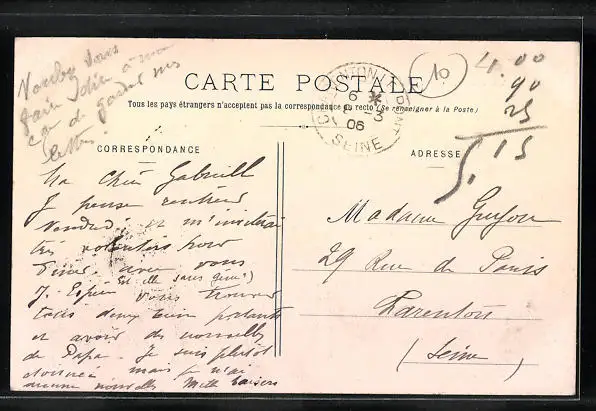 Voulez vous
faire dire à
cas de garder mes
lettres
CARTE POSTALE
Tous les pays étrangers n'acceptent pas la correspondance au recto (Se renseigner à la Poste)
CHARENTON LE PONT
6 *
2 - 3
06
SEINE
10
4.00
90
25
5.15
CORRESPONDANCE
ADRESSE
Ma Chère Gabrielle
Je pense rentrer
Vendredi et m'inviterai
très volontiers pour
dîner avec vous
Est elle sans gêne!)
J'Espère vous trouver
tous deux bien portants
et avoir des nouvelles
de Papa. Je suis plutôt
étonnée mais je n'ai
aucune nouvelle Mille baisers
Madame Guyon
29 Rue de Paris
Charenton
(Seine)